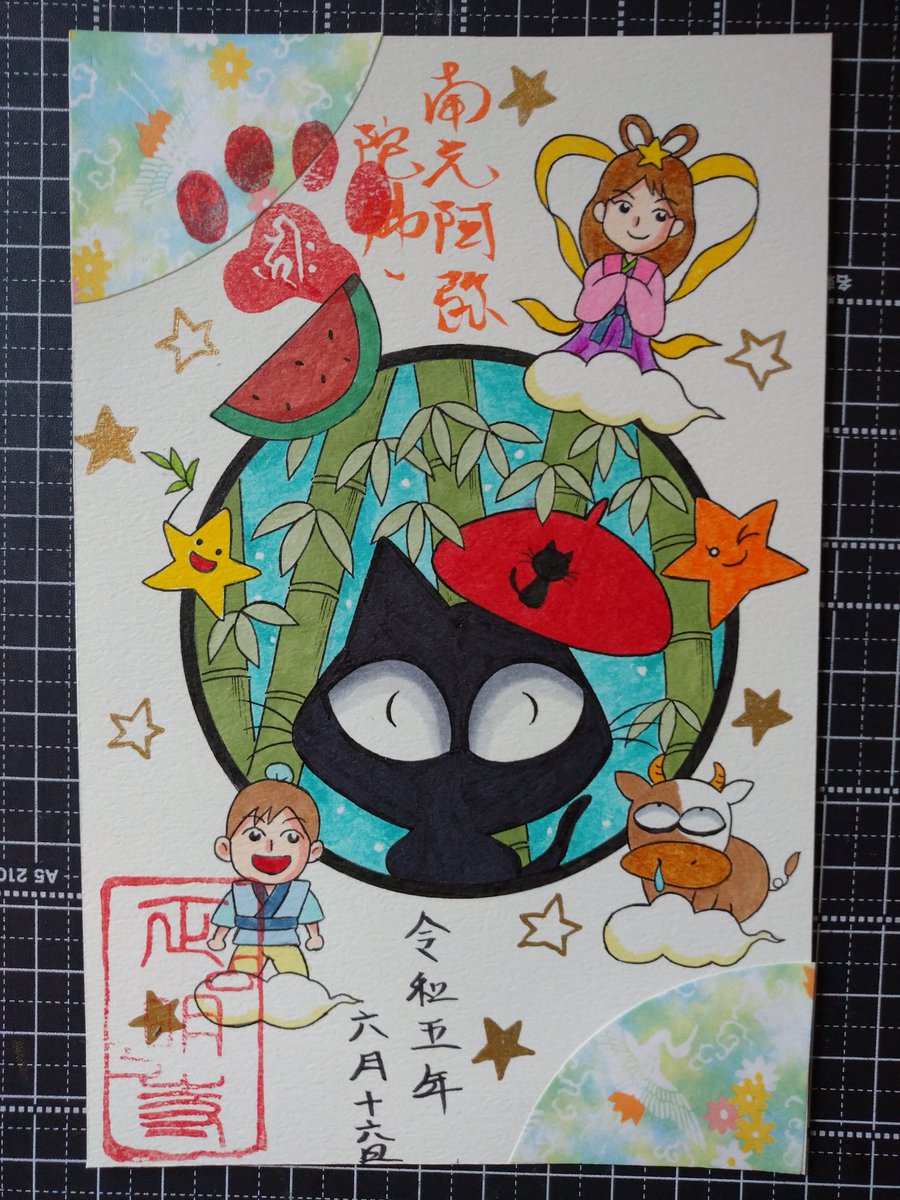 南无阿弥
陀佛
令和五年
六月十六日
正明寺
A5 210